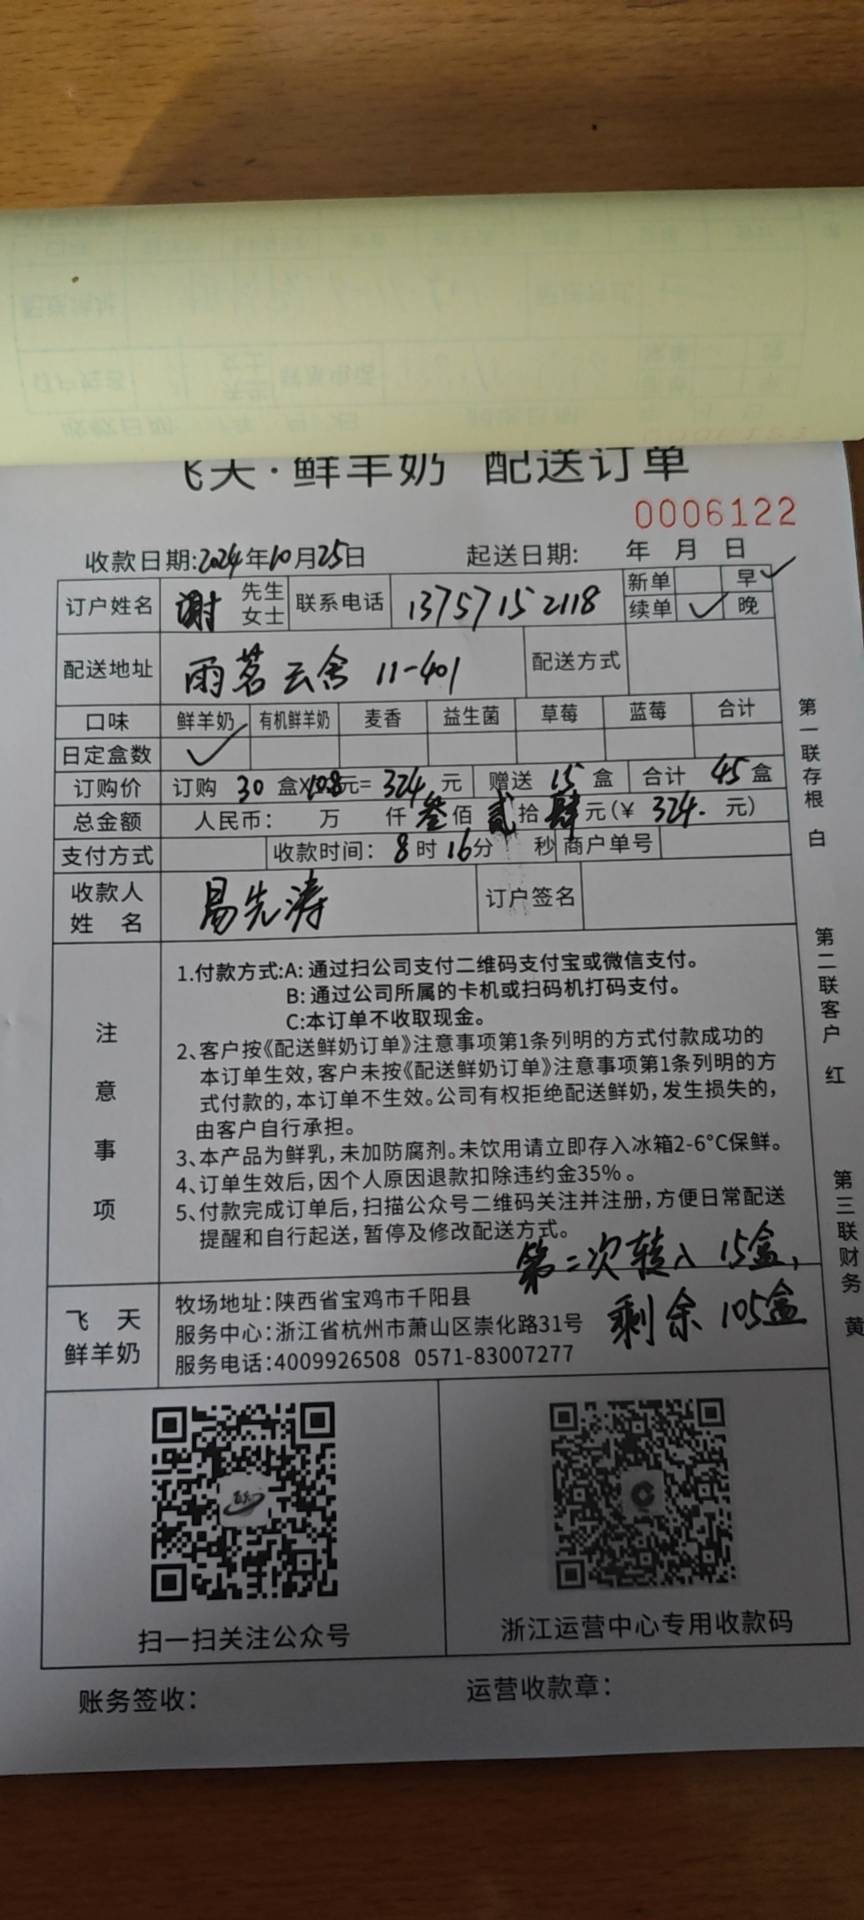 飞天·鲜羊奶 配送订单
0006122
收款日期:2024年10月25日 起送日期: 年 月 日
订户姓名 谢 先生 女士 联系电话 13757152118 新单 早✓
续单 ✓ 晚
配送地址 雨茗云舍 11-401 配送方式
口味 鲜羊奶 有机鲜羊奶 麦香 益生菌 草莓 蓝莓 合计
日定盒数 ✓
订购价 订购 30 盒×10.8元= 324 元 赠送 15 盒 合计 45 盒
总金额 人民币: 万 仟 叁 佰 贰 拾 肆 元(¥ 324. 元)
支付方式 收款时间: 8 时 16 分 秒 商户单号
收款人姓名 易先涛 订户签名
注意事项
1.付款方式:A: 通过扫公司支付二维码支付宝或微信支付。
B: 通过公司所属的卡机或扫码机打码支付。
C:本订单不收取现金。
2、客户按《配送鲜奶订单》注意事项第1条列明的方式付款成功的
本订单生效,客户未按《配送鲜奶订单》注意事项第1条列明的方
式付款的,本订单不生效。公司有权拒绝配送鲜奶,发生损失的,
由客户自行承担。
3、本产品为鲜乳,未加防腐剂。未饮用请立即存入冰箱2-6°C保鲜。
4、订单生效后,因个人原因退款扣除违约金35%。
5、付款完成订单后,扫描公众号二维码关注并注册,方便日常配送
提醒和自行起送,暂停及修改配送方式。
第二次转入 15盒,
剩余 105盒
飞天
鲜羊奶
牧场地址:陕西省宝鸡市千阳县
服务中心:浙江省杭州市萧山区崇化路31号
服务电话:4009926508 0571-83007277
扫一扫关注公众号
浙江运营中心专用收款码
账务签收: 运营收款章:
第一联存根 白
第二联客户 红
第三联财务 黄